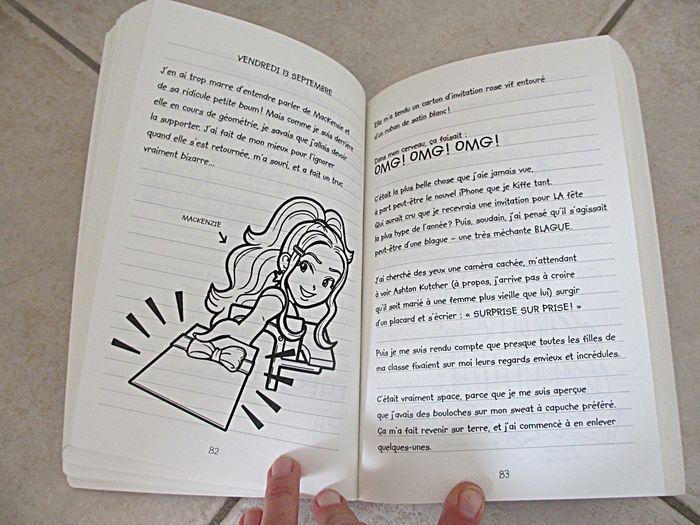 VENDREDI 13 SEPTEMBRE
J'en ai trop marre d'entendre parler de MacKenzie et
de sa ridicule petite boum! Mais comme je suis derrière
elle en cours de géométrie, je savais que j'allais devoir
la supporter. J'ai fait de mon mieux pour l'ignorer
quand elle s'est retournée, m'a souri, et a fait un truc
vraiment bizarre...
MACKENZIE
82
Elle m'a tendu un carton d'invitation rose vif entouré
d'un ruban de satin blanc!
Dans mon cerveau, ça faisait :
OMG! OMG! OMG!
C'était la plus belle chose que j'aie jamais vue,
à part peut-être le nouvel iPhone que je kiffe tant.
Qui aurait cru que je recevrais une invitation pour LA fête
la plus hype de l'année? Puis, soudain, j'ai pensé qu'il s'agissait
peut-être d'une blague – une très méchante BLAGUE.
J'ai cherché des yeux une caméra cachée, m'attendant
à voir Ashton Kutcher (à propos, j'arrive pas à croire
qu'il soit marié à une femme plus vieille que lui) surgir
d'un placard et s'écrier : « SURPRISE SUR PRISE! »
Puis je me suis rendu compte que presque toutes les filles de
ma classe fixaient sur moi leurs regards envieux et incrédules.
C'était vraiment space, parce que je me suis aperçue
que j'avais des bouloches sur mon sweat à capuche préféré.
Ça m'a fait revenir sur terre, et j'ai commencé à en enlever
quelques-unes.
83